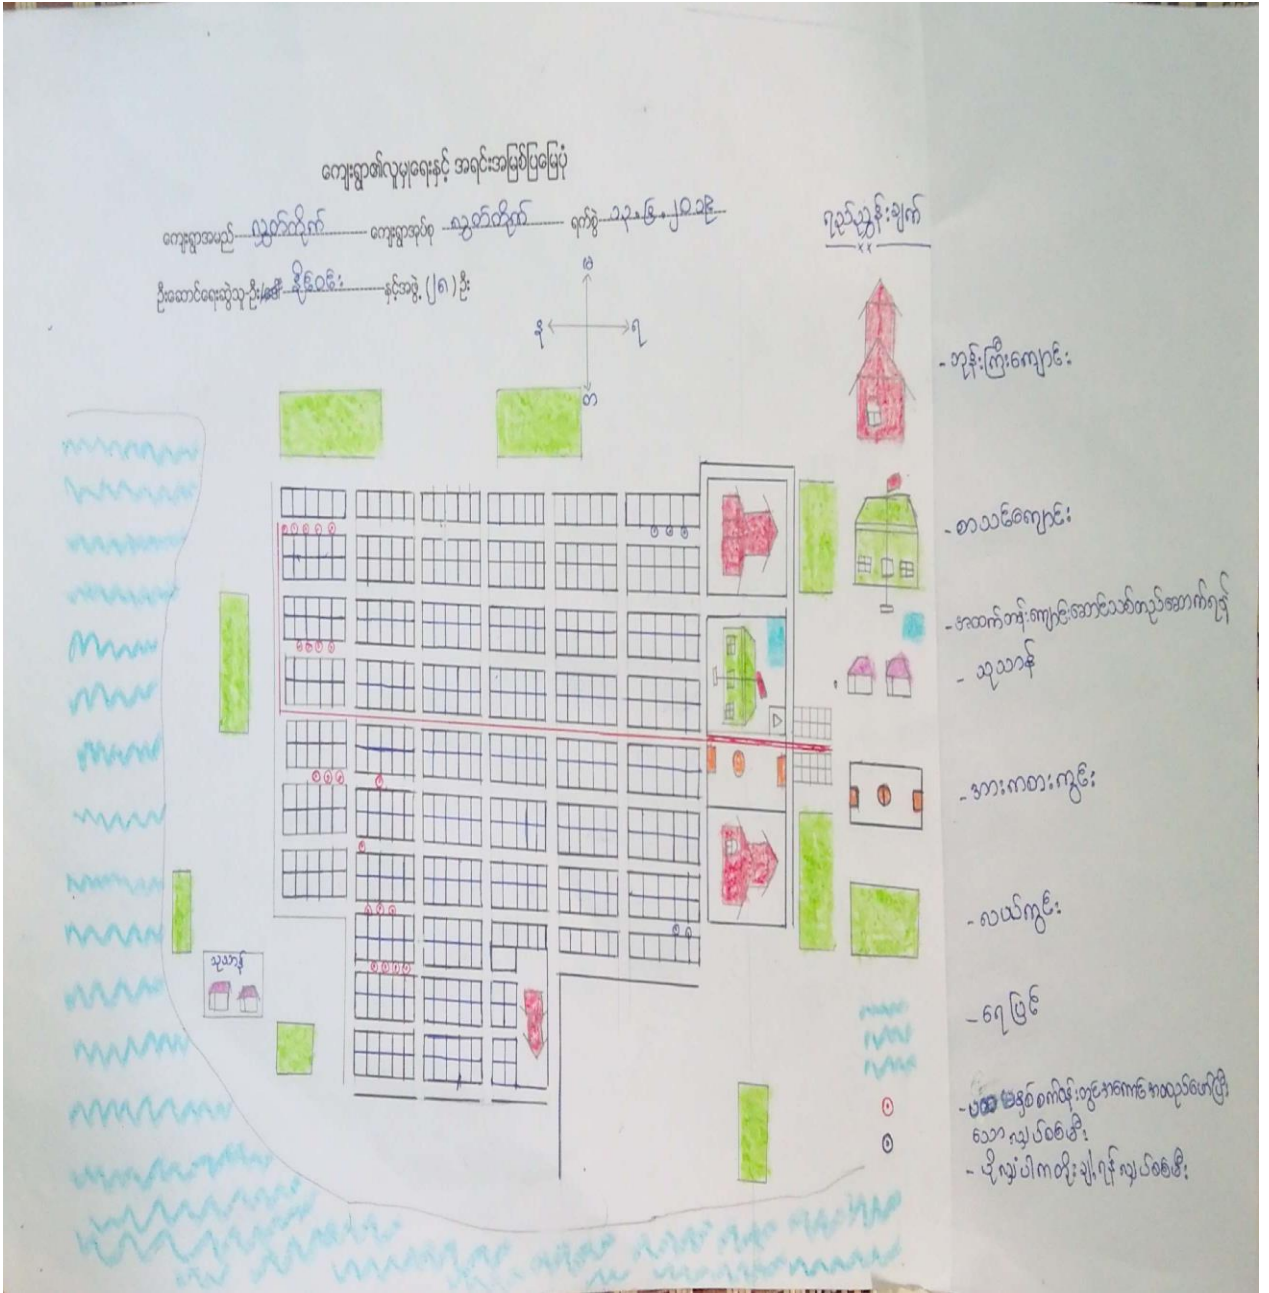 ကျေးရွာ၏လူမှုရေးနှင့် အရင်းအမြစ်ပြမြေပုံ
ကျေးရွာအမည် လွှတ်တိုက် ကျေးရွာအုပ်စု လွှတ်တိုက် ရက်စွဲ ၁၃.၆.၂၀၁၉
ဦးဆောင်ရေးဆွဲသူ-ဦး/ဒေါ် နိုင်ဝင်း နှင့်အဖွဲ့ (၂၈) ဦး
ရည်ညွှန်းချက်
မ
န ရ
တ
- ဘုန်းကြီးကျောင်း
- စာသင်ကျောင်း
- အထက်တန်းကျောင်းဆောင်သစ်တည်ဆောက်ရန်
- သုသာန်
- အားကစားကွင်း
- လယ်ကွင်း
- ရေပြင်
သုသာန်
သော လျှပ်စစ်မီး
- ပိုလျှံပါကတိုးချဲ့ရန်လျှပ်စစ်မီး